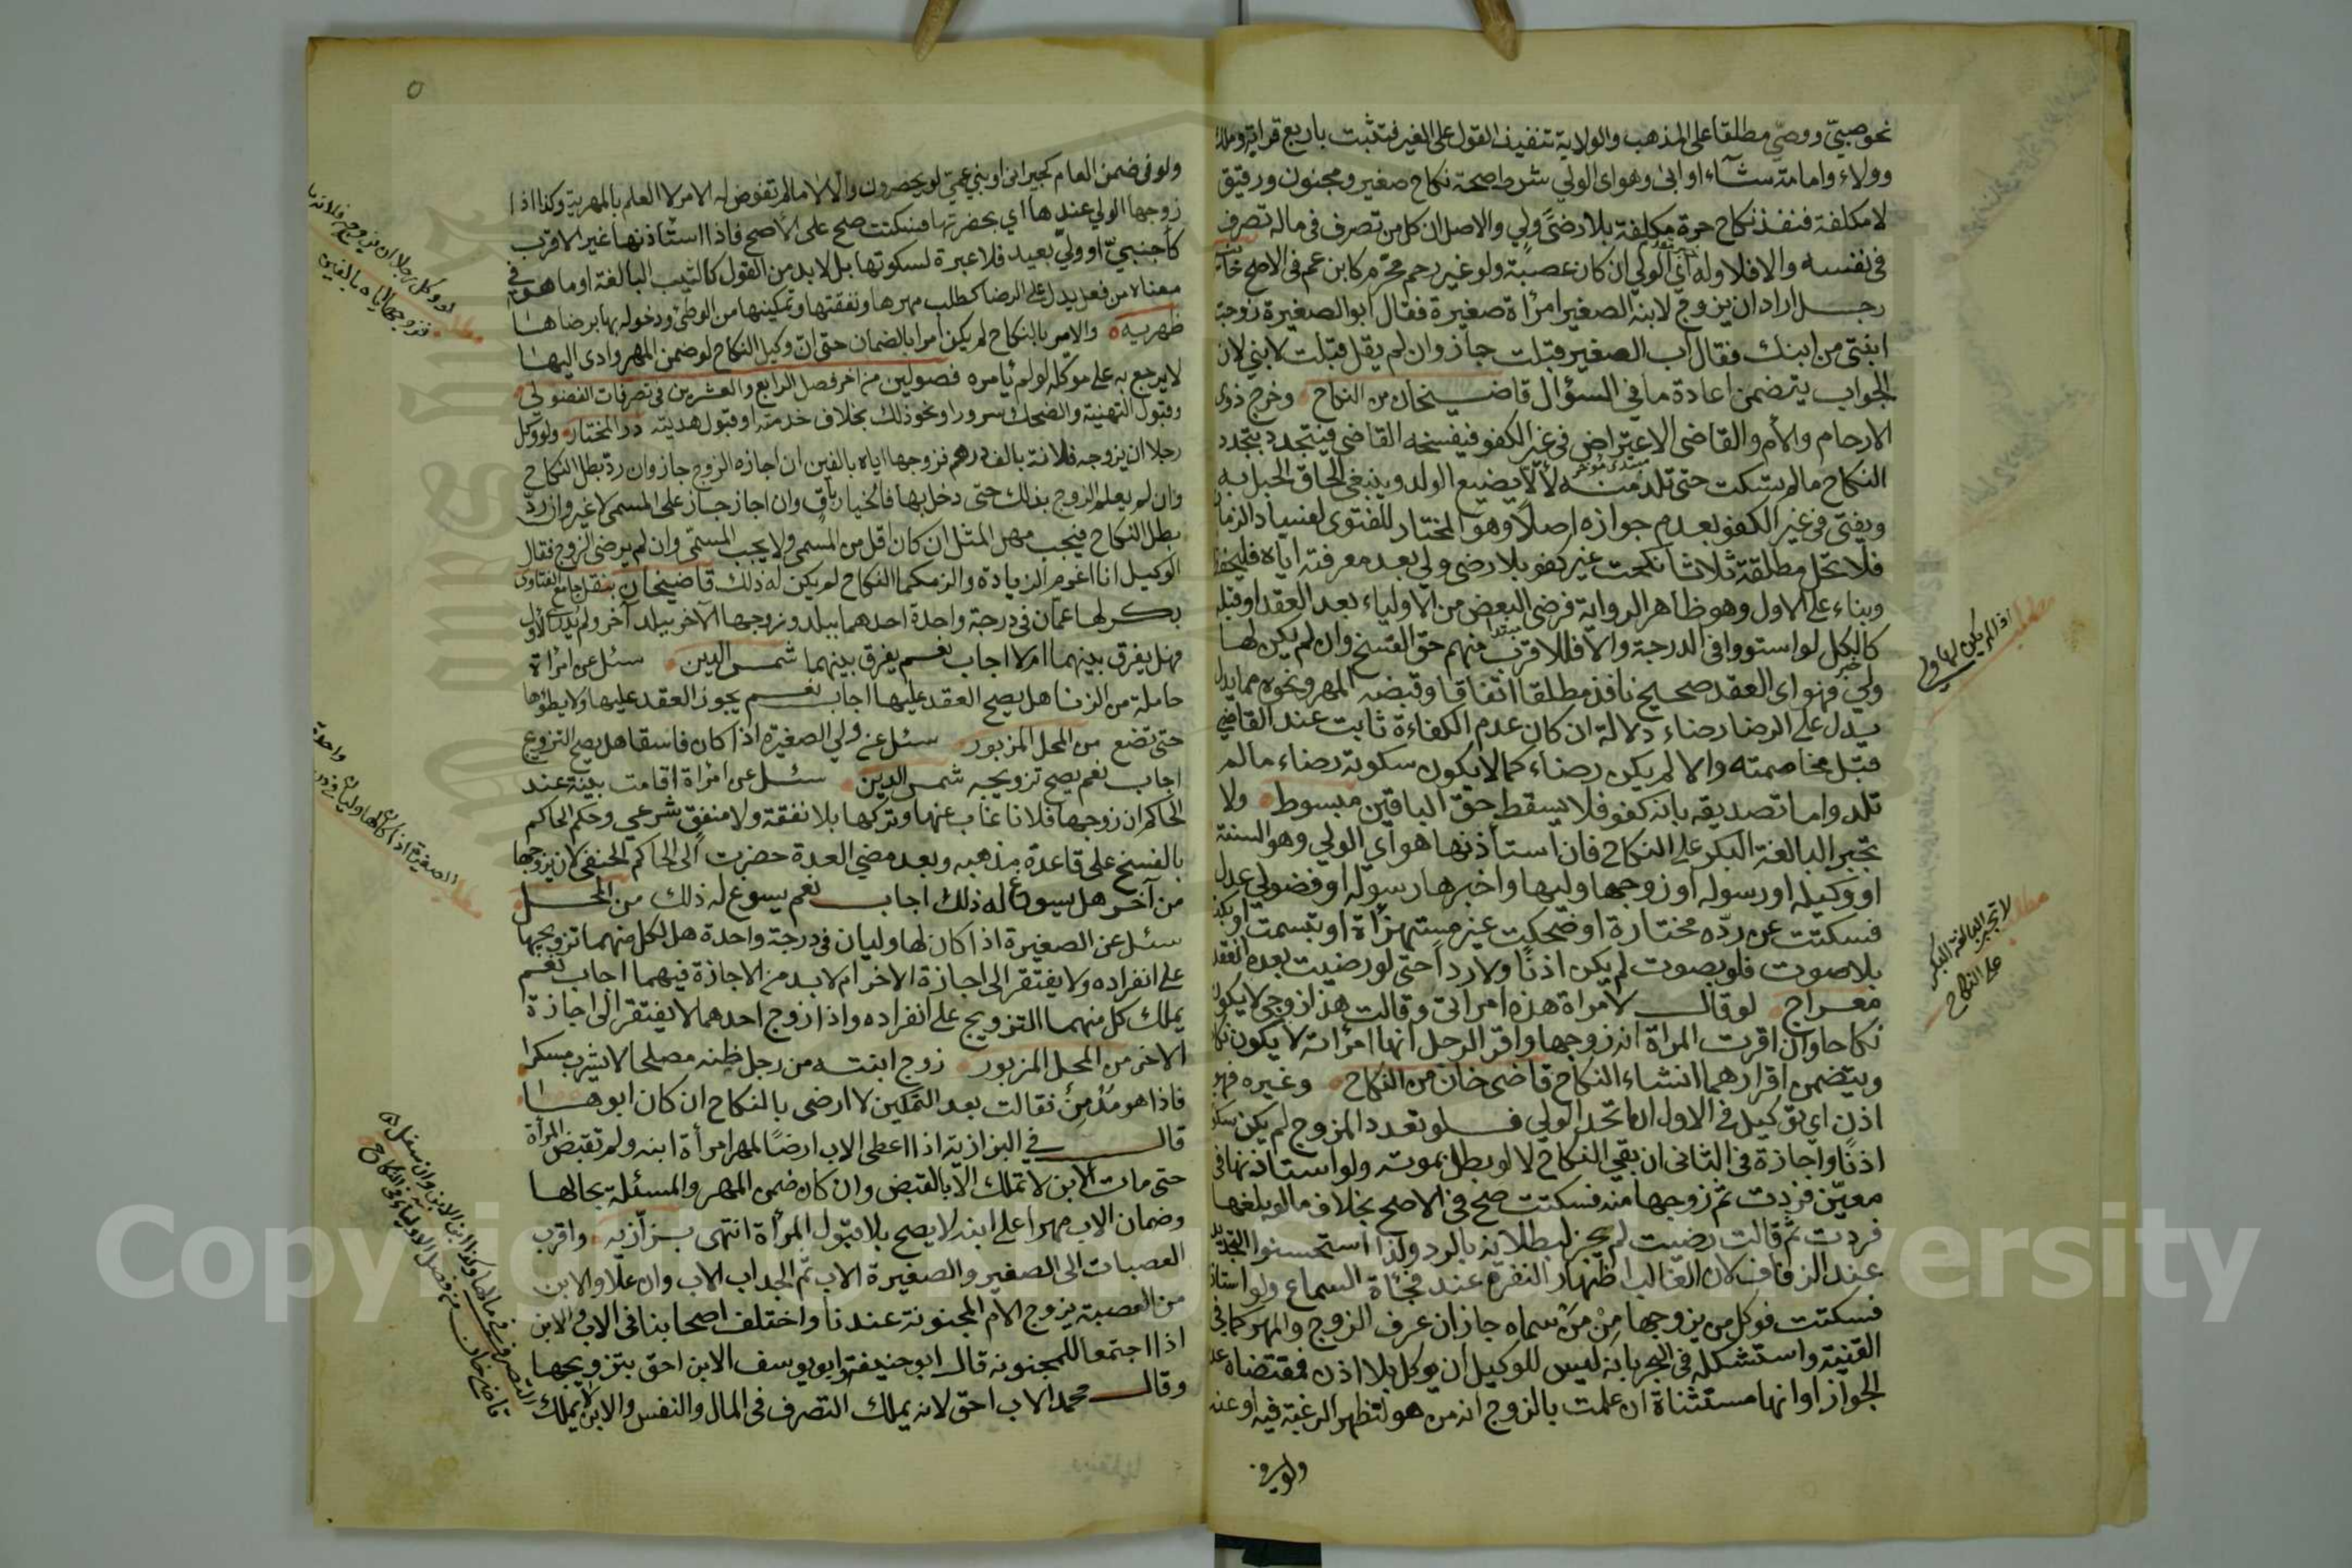 نحو صبيّ ووصيّ مطلقا على المذهب والولاية تنفيذ القول على الغير فتثبت باربع قرابة وملك
وولاء وامامة شآء او ابى وهو اى الولي شرط صحة نكاح صغير ومجنون ورقيق
لا مكلفة فنفذ نكاح حرة مكلفة بلا رضىً ولي والاصل ان كل من تصرف في ماله تصرف
في نفسه والا فلا وله اي الولي ان كان عصبة ولو غير رحم محرّم كابن عم في الاصح
رجل اراد ان يزوج لابنه الصغير امرأة صغيرة فقال ابو الصغيرة زوجت
ابنتي من ابنك فقال اب الصغير قبلت جاز وان لم يقل قبلت لابني لان
الجواب يتضمن اعادة ما في السؤال قاضيخان من النكاح وخرج ذوى
الارحام والام والقاضى الاعتراض في غير الكفو فيفسخه القاضي فيتجدد بتجدد
النكاح ما لم يسكت حتى تلد منه لألّا يضيع الولد وينبغي الحاق الحبل به
ويفتى في غير الكفو بعدم جوازه اصلاً وهو المختار للفتوى لفساد الزمان
فلا تحل مطلقة ثلاثا نكحت غير كفو بلا رضى ولي بعد معرفته اياه فليحفظ
وبناء على الاول وهو ظاهر الرواية فرضى البعض من الاولياء بعد العقد او قبله
كالكل لو استووا في الدرجة والا فللاقرب منهم حق الفسخ وان لم يكن لها
ولي فهو اى العقد صحيح نافذ مطلقا اتفاقا وقبضه المهر ونحوه مما يدل
يدل على الرضا رضاء دلالة ان كان عدم الكفاءة ثابت عند القاضي
قبل مخاصمته والا لم يكن رضاء كما لا يكون سكوته رضاء ما لم
تلد واما تصديقه بانه كفو فلا يسقط حق الباقين مبسوط ولا
تجبر البالغة البكر على النكاح فان استأذنها هو اى الولي وهو السنة
او وكيله او رسوله او زوجها وليها واخبرها رسوله او فضولي عدل
فسكتت عن ردّه مختارة او ضحكت غير مستهزأة او تبسمت او بكت
بلا صوت فلو بصوت لم يكن اذنًا ولا رداً حتى لو رضيت بعده انعقد
معراج لو قال لامرأة هذه امرأتى وقالت هذا زوجى لا يكون
نكاحا وان اقرت المرأة انه زوجها واقر الرجل انها امرأته لا يكون
ويتضمن اقرارهما انشاء النكاح قاضى خان من النكاح وغيره فهو
اذن اي توكيل في الاول ان اتحد الولي فلو تعدد المزوج لم يكن
اذنًا واجازة في الثانى ان بقي النكاح لا لو بطل بموته ولو استاذنها في
معيّن فردت ثم زوجها منه فسكتت صح في الاصح بخلاف ما لو بلغها
فردت ثم قالت رضيت لم يجز لبطلانه بالرد ولذا استحسنوا
عند الزفاف لان الغالب اظهار النفرة عند فجأة السماع ولو استأذ
فسكتت فوكل من يزوجها مِنْ مَنْ سماه جاز ان عرف الزوج والمهر كما في
القنية واستشكله في البحر بانه ليس للوكيل ان يوكل بلا اذن فمقتضاه
الجواز او انها مستثناة ان علمت بالزوج انه من هو لتظهر الرغبة فيه او عنه
ولو في
اذا لم يكن لها ولي
مطلب
مطلب
لا تجبر البالغة البكر
على النكاح
٥
ولو في ضمن العام كجيرانى او بني عمي لو يحصرون والا لا ما لم تفوض له الامر لا العلم بالمهر وكذا اذا
زوجها الولي عندها اي بحضرتها فسكتت صح على الأصح فاذا استأذنها غير الاقرب
كأجنبيّ او وليّ بعيد فلا عبرة لسكوتها بل لا بد من القول كالثيب البالغة او ما هو في
معناه من فعل يدل على الرضا كطلب مهرها ونفقتها وتمكينها من الوطئ ودخوله بها برضاها
ظهريه والامر بالنكاح لم يكن أمرا بالضمان حتى انّ وكيل النكاح لو ضمن المهر وادى اليها
لا يرجع به على موكله لو لم يأمره فصولين من اخر فصل الرابع والعشرين في تصرفات الفضولى
وقبول التهنية والضحك سرورا ونحو ذلك بخلاف خدمته او قبول هديته در المختار ولو وكل
رجلا ان يزوجه فلانة بالف درهم فزوجها اياه بالفين ان اجازه الزوج جاز وان ردّ بطل النكاح
وان لم يعلم الزوج بذلك حتى دخل بها فالخيار باقٍ وان اجاز جاز على المسمى لا غير وان ردّ
بطل النكاح فيجب مهر المثل ان كان اقل من المسمى ولا يجب المسمّى وان لم يرضى الزوج فقال
الوكيل انا اغرم الزيادة والزمكما النكاح لم يكن له ذلك قاضيخان بنقل جامع الفتاوى
بكر لها عمّان في درجة واحدة احدهما ببلد وزوجها الآخر ببلد آخر ولم
فهل يفرق بينهما ام لا اجاب نعم يفرق بينهما شمس الدين سئل عن امرأة
حاملة من الزنا هل يصح العقد عليها اجاب نعم يجوز العقد عليها ولا يطؤها
حتى تضع من المحل المزبور سئل عن ولي الصغيرة اذا كان فاسقا هل يصح التزويج
اجاب نعم يصح تزويجه شمس الدين سئل عن امرأة اقامت بينة عند
الحاكم ان زوجها فلانا غاب عنها وتركها بلا نفقة ولا منفق شرعي وحكم الحاكم
بالفسخ على قاعدة مذهبه وبعد مضي العدة حضرت الى الحاكم الحنفي لان يزوجها
من آخر هل يسوغ له ذلك اجاب نعم يسوغ له ذلك من المحل
سئل عن الصغيرة اذا كان لها وليان في درجة واحدة هل لكل منهما تزويجها
على انفراده ولا يفتقر الى اجازة الاخر ام لا بد من الاجازة فيهما اجاب نعم
يملك كل منهما التزويج على انفراده واذا زوج احدهما لا يفتقر الى اجازة
الاخر من المحل المزبور زوج ابنته من رجل ظنه مصلحا لا يشرب مسكرا
فاذا هو مُدْمِنٌ فقالت بعد التمكين لا ارضى بالنكاح ان كان ابوها
قال في البزازية اذا اعطى الاب ارضًا لمهر امرأة ابنه ولم تقبض المرأة
حتى مات الابن لا تملك الا بالقبض وان كان ضمن المهر والمسئلة بحالها
وضمان الاب مهرا على ابنه لا يصح بلا قبول المرأة انتهى بزّازيه واقرب
العصبات الى الصغير والصغيرة الاب ثم الجد اب الاب وان علا والابن
من العصبة يزوج الام المجنونة عندنا واختلف اصحابنا في الاب والابن
اذا اجتمعا للمجنونه قال ابو حنيفة وابو يوسف الابن احق بتزويجها
وقال محمد الاب احق لانه يملك التصرف في المال والنفس والابن لا يملك
لو وكل رجلا ان يزوجه فلانة
مطلب فزوجها اياه بالفين
الصغيرة اذا كان لها وليان في درجة واحدة
مطلب
التصرف في مالها وكذا ابن الابن وان سفل
قاضى خان من فصل الاولياء في النكاح
Copyright © King Saud University